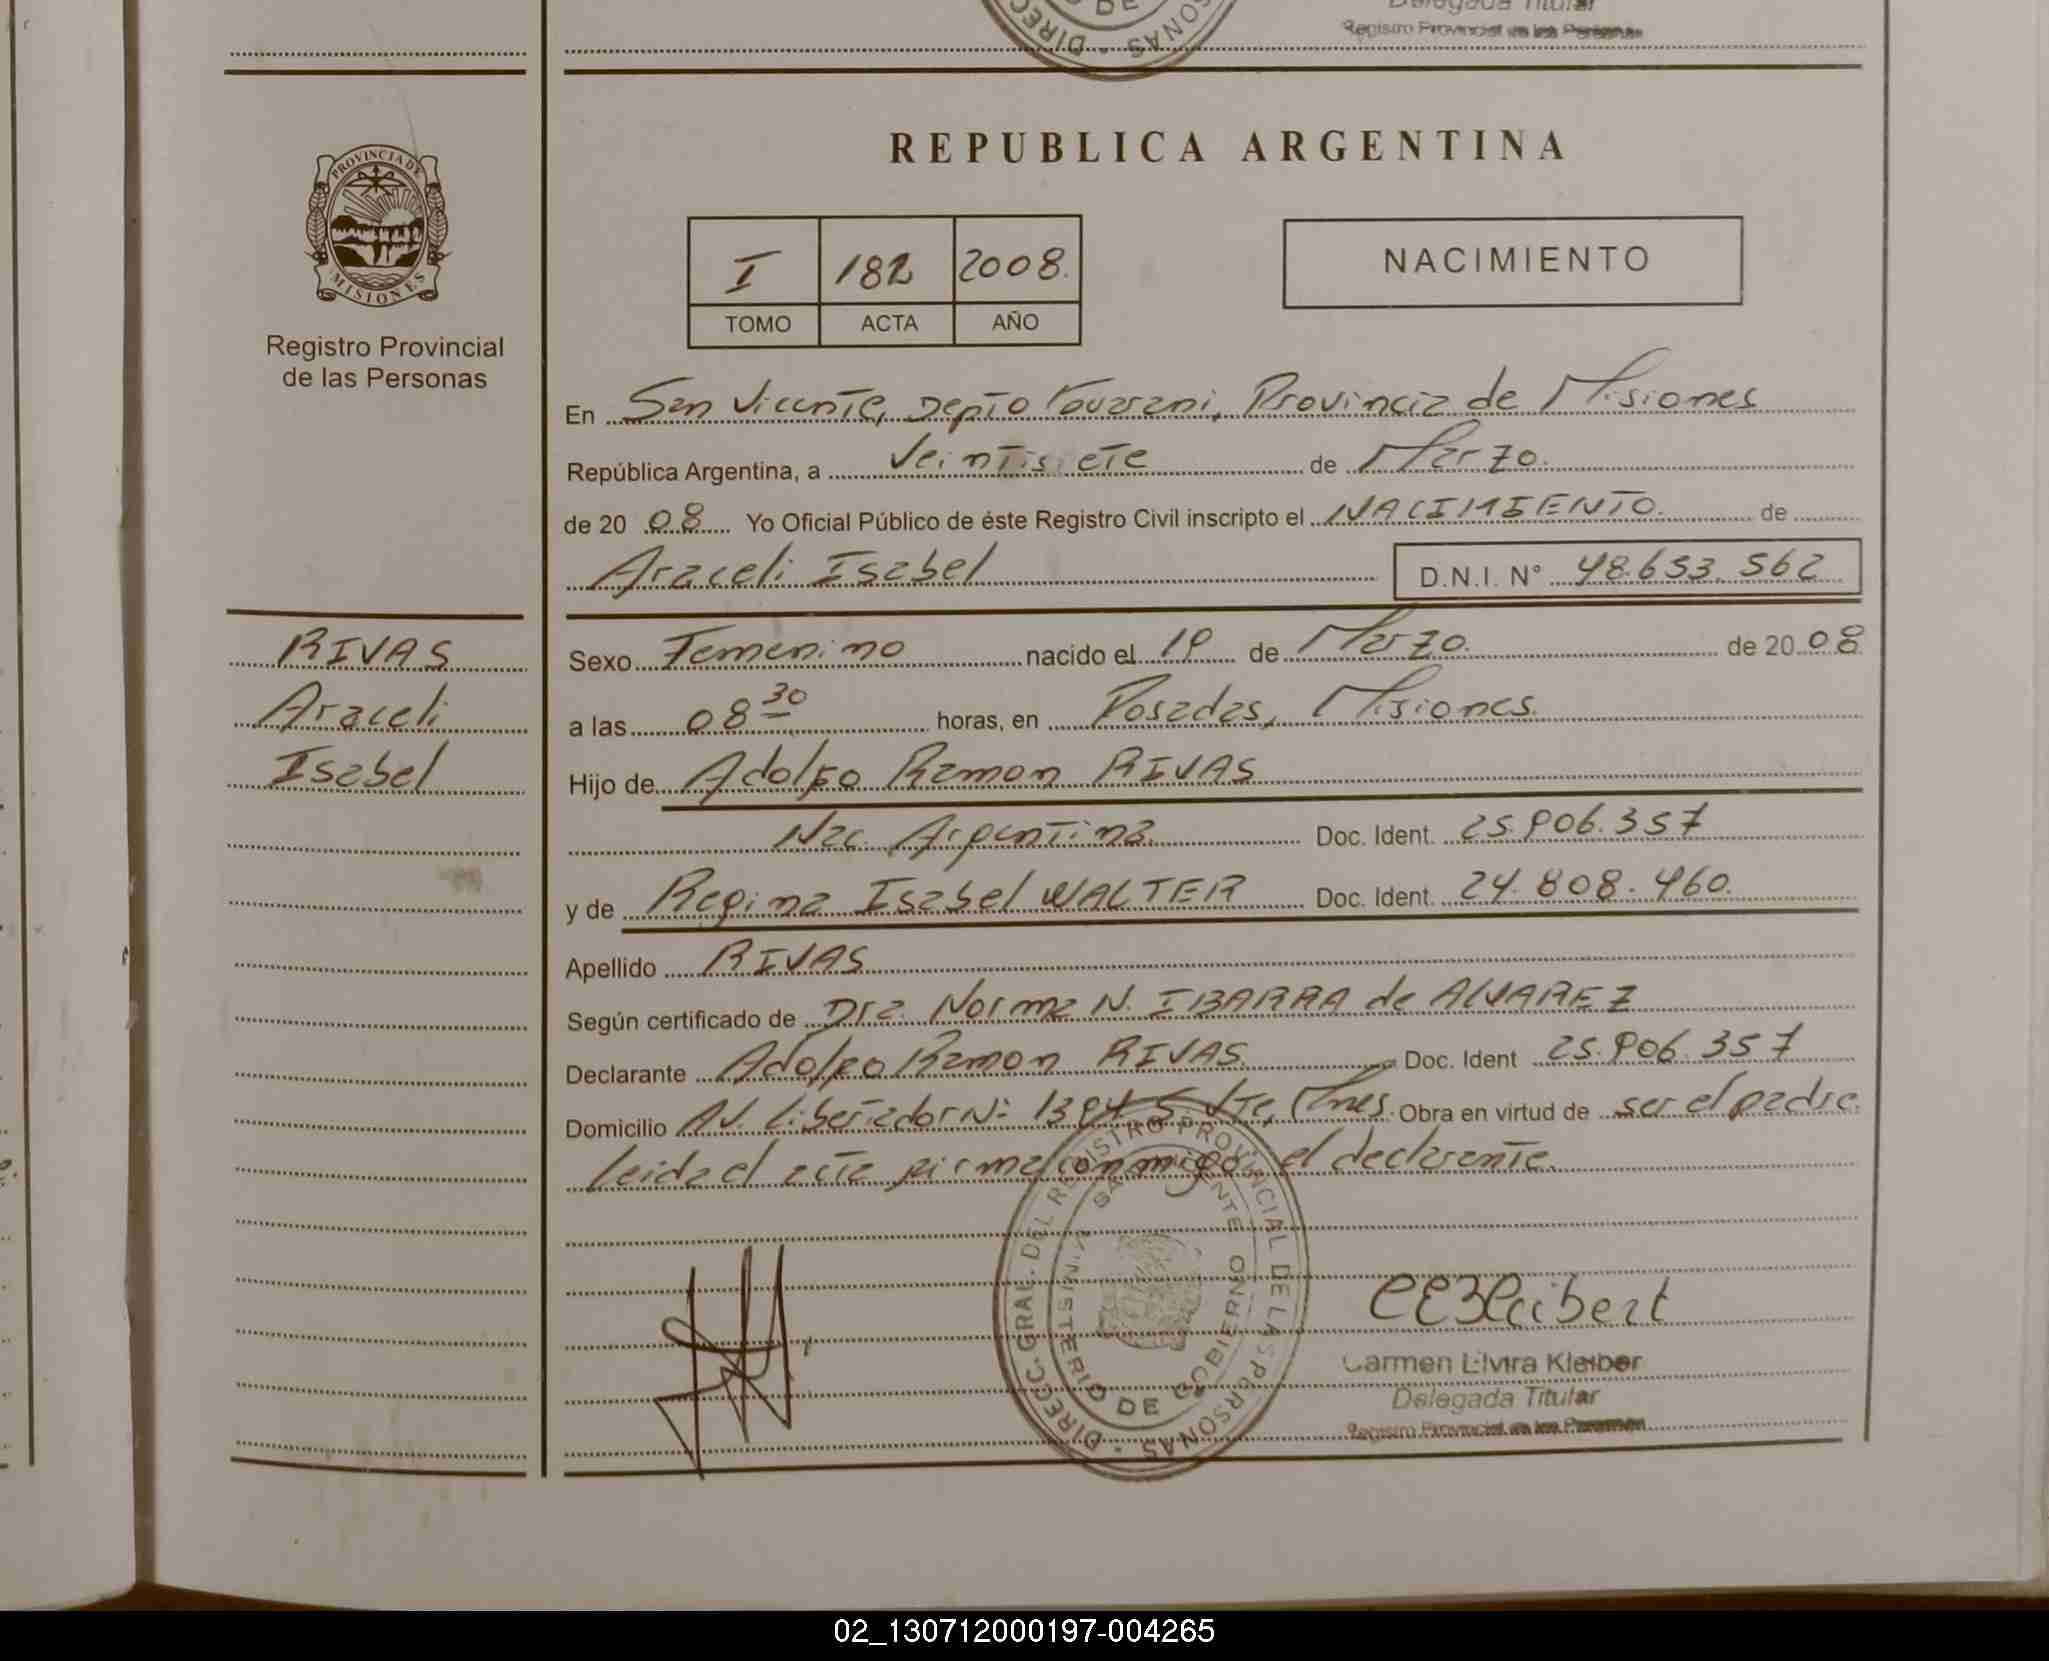 Delegada Titular
Registro Provincial de las Personas
REPUBLICA ARGENTINA
PROVINCIA DE
MISIONES
Registro Provincial
de las Personas
I 182 2008.
TOMO ACTA AÑO
NACIMIENTO
En San Vicente, Depto Guarani, Provincia de Misiones
República Argentina, a Veintisiete de Marzo.
de 20 08 Yo Oficial Público de éste Registro Civil inscripto el NACIMIENTO. de
Araceli Isabel D.N.I. N° 48.653.562
RIVAS
Araceli
Isabel
Sexo Femenino nacido el 19 de Marzo. de 20 08
a las 08 30 horas, en Posadas, Misiones.
Hijo de Adolfo Ramon RIVAS
Nac. Argentina. Doc. Ident. 25.906.357
y de Regina Isabel WALTER Doc. Ident. 24.808.460.
Apellido RIVAS
Según certificado de Dra. Norma N. IBARRA de ALVAREZ
Declarante Adolfo Ramon RIVAS. Doc. Ident 25.906.357
Domicilio AV. Libertador N° 1394 S. Vte, Mnes. Obra en virtud de ser el padre.
Leida el acta firma conmigo el declarante.
DIRECC. GRAL. DEL REGISTRO PROVINCIAL DE LAS PERSONAS
SAN VICENTE
MINISTERIO DE GOBIERNO
Carmen Elvira Kleiber
Delegada Titular
Registro Provincial de las Personas
02_130712000197-004265